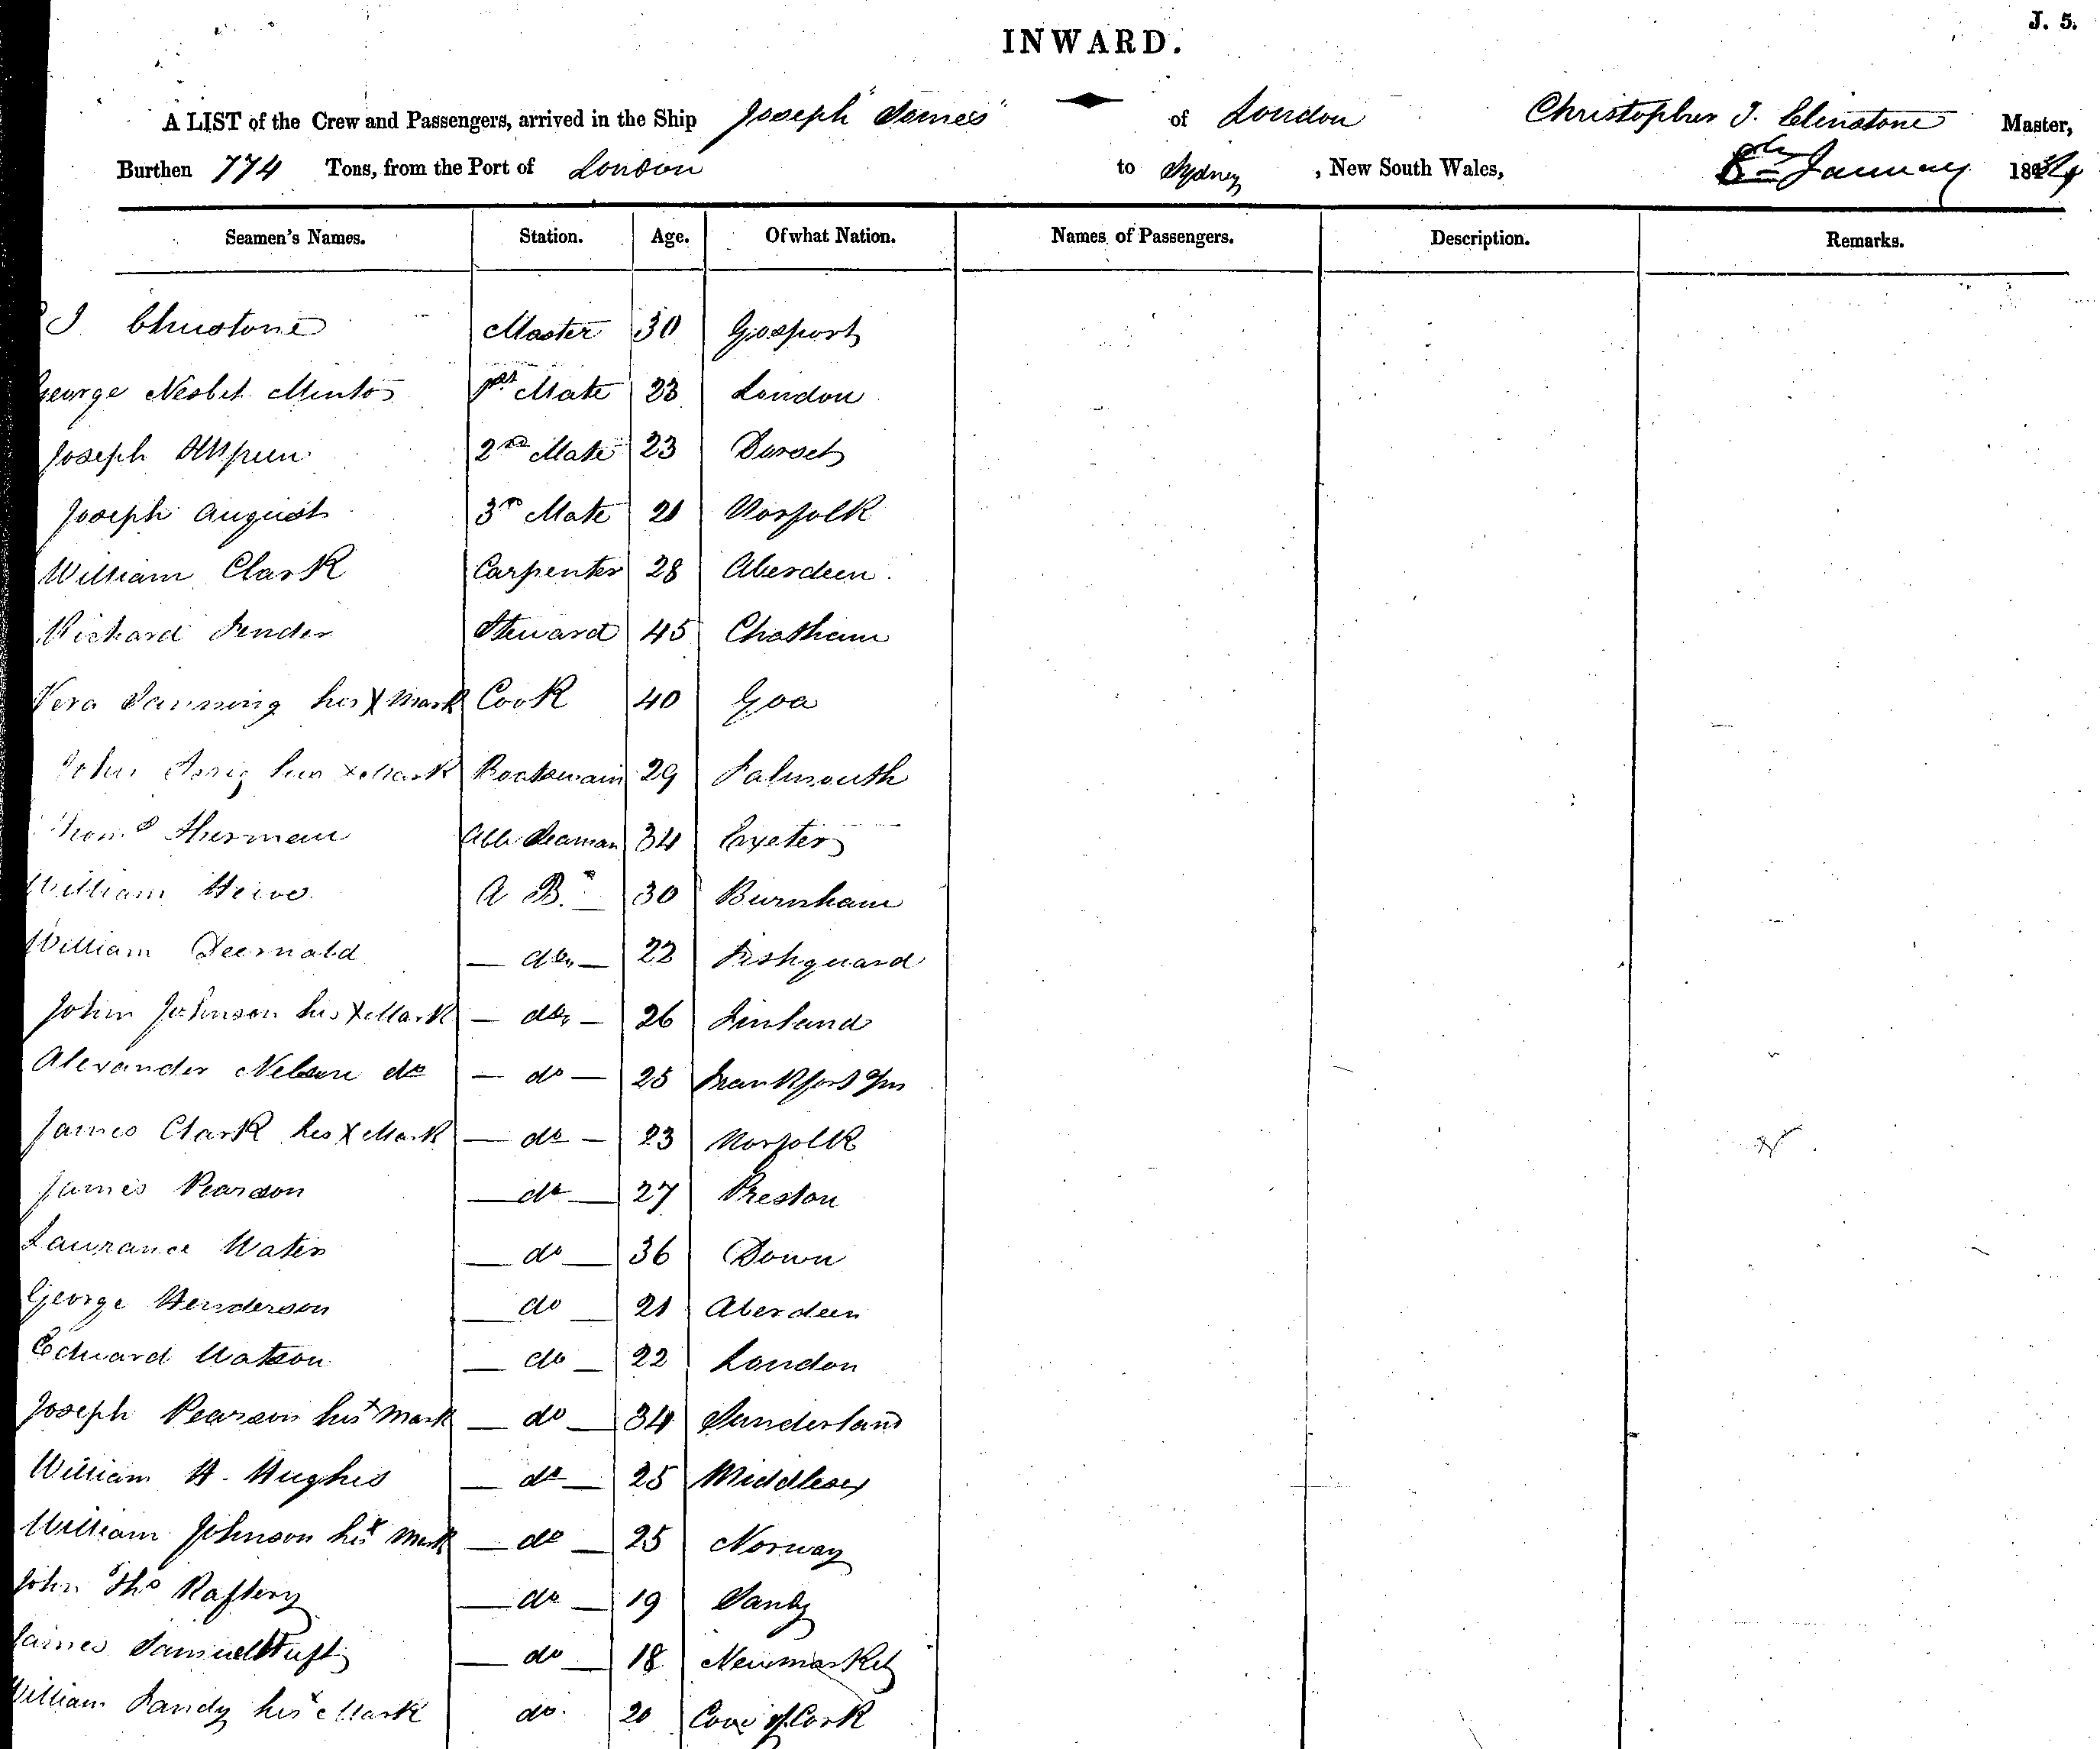 J. 5.
INWARD.
A LIST of the Crew and Passengers, arrived in the Ship "Joseph Somes" of London Christopher J. Master,
Burthen 774 Tons, from the Port of London to Sydney, New South Wales, 8th January 18
Seamen's Names. Station. Age. Of what Nation. Names of Passengers. Description. Remarks.
J Master 30 Gosport
George Nesbet Minto 1st Mate 23 London
Joseph 2nd Mate 23 Dorset
Joseph August 3rd Mate 21 Norfolk
William Clark Carpenter 28 Aberdeen
Richard Steward 45 Chatham
his X Mark Cook 40 Goa
John his x Mark Boatswain 29 Falmouth
Thoms Sherman Able Seaman 34 Exeter
William A B. 30 Burnham
William — do — 22 Fishguard
John Johnson his X Mark — do — 26 Finland
Alexander Nelson do — do — 25 Frankfort
James Clark his X Mark — do — 23 Norfolk
James Pearson — do — 27 Preston
Laurance Water — do — 36 Down
George Henderson — do — 21 Aberdeen
Edward Watson — do — 22 London
Joseph Pearson his x Mark — do — 34 Sunderland
William H. Hughes — do — 25 Middlesex
William Johnson his x Mark — do — 25 Norway
John Thos Raftery — do — 19
James Samuel — do — 18 Newmarket
William his x Mark do. 20 Cove of Cork